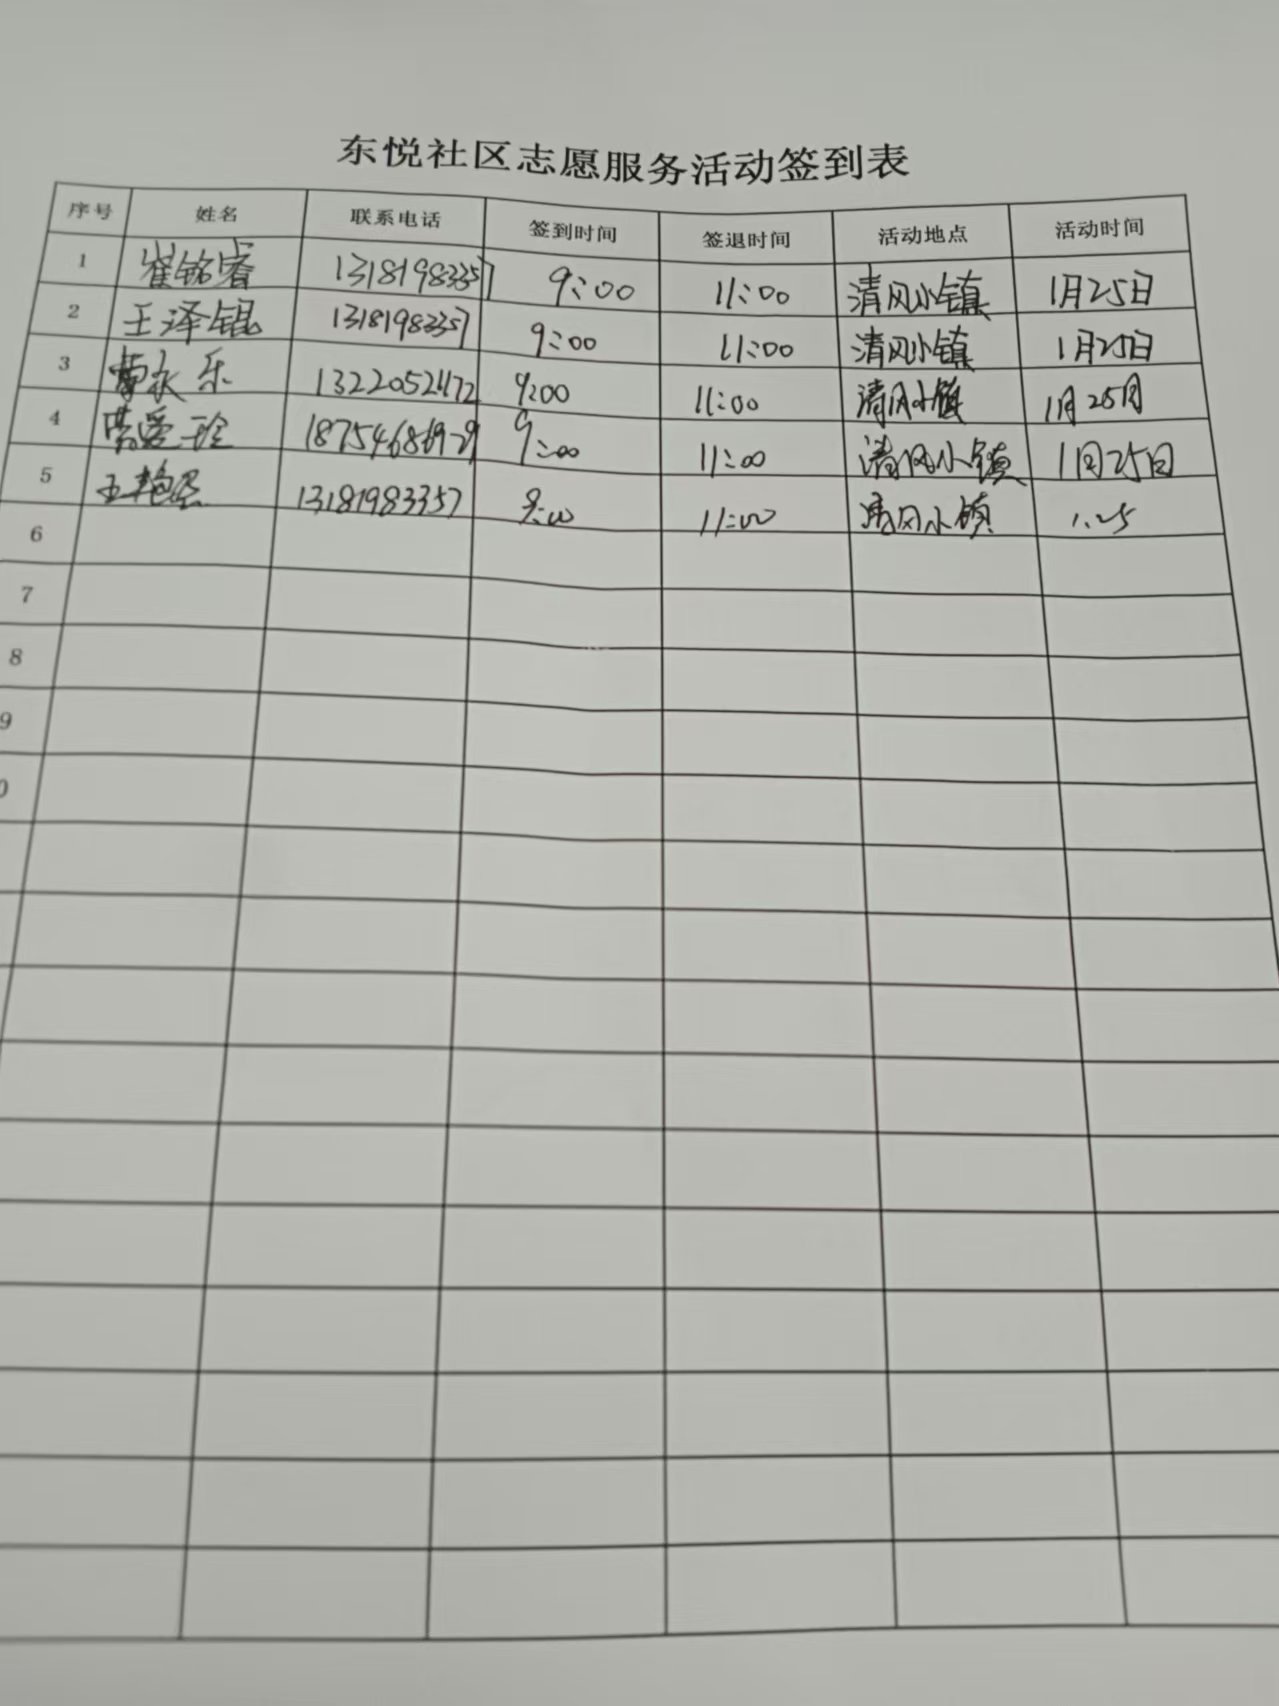 东悦社区志愿服务活动签到表
序号 姓名 联系电话 签到时间 签退时间 活动地点 活动时间
1 崔铭睿 13181983357 9:00 11:00 清风小镇 1月25日
2 王泽锟 13181983357 9:00 11:00 清风小镇 1月25日
3 永乐 13220521172 9:00 11:00 清风小镇 1月25日
4 爱玲 18754686929 9:00 11:00 清风小镇 1月25日
5 王艳 13181983357 9:00 11:00 清风小镇 1.25
6
7
8
9
0